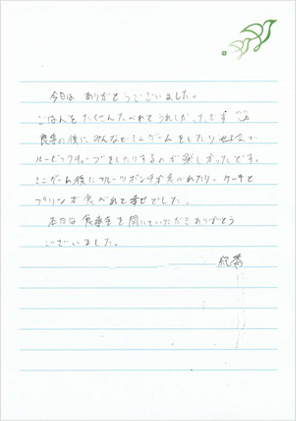 今日は ありがとうございました。
ごはんを たくさん たべれて うれしかったです
食事の後に みんなで ミニゲーム をしたり
ルービックキューブをしたりするのが楽しかったです。
ミニゲーム後にフルーツポンチが食べれたり、ケーキと
プリンが食べれて幸せでした。
本日は 食事会を 開いていただきありがとう
ございました。